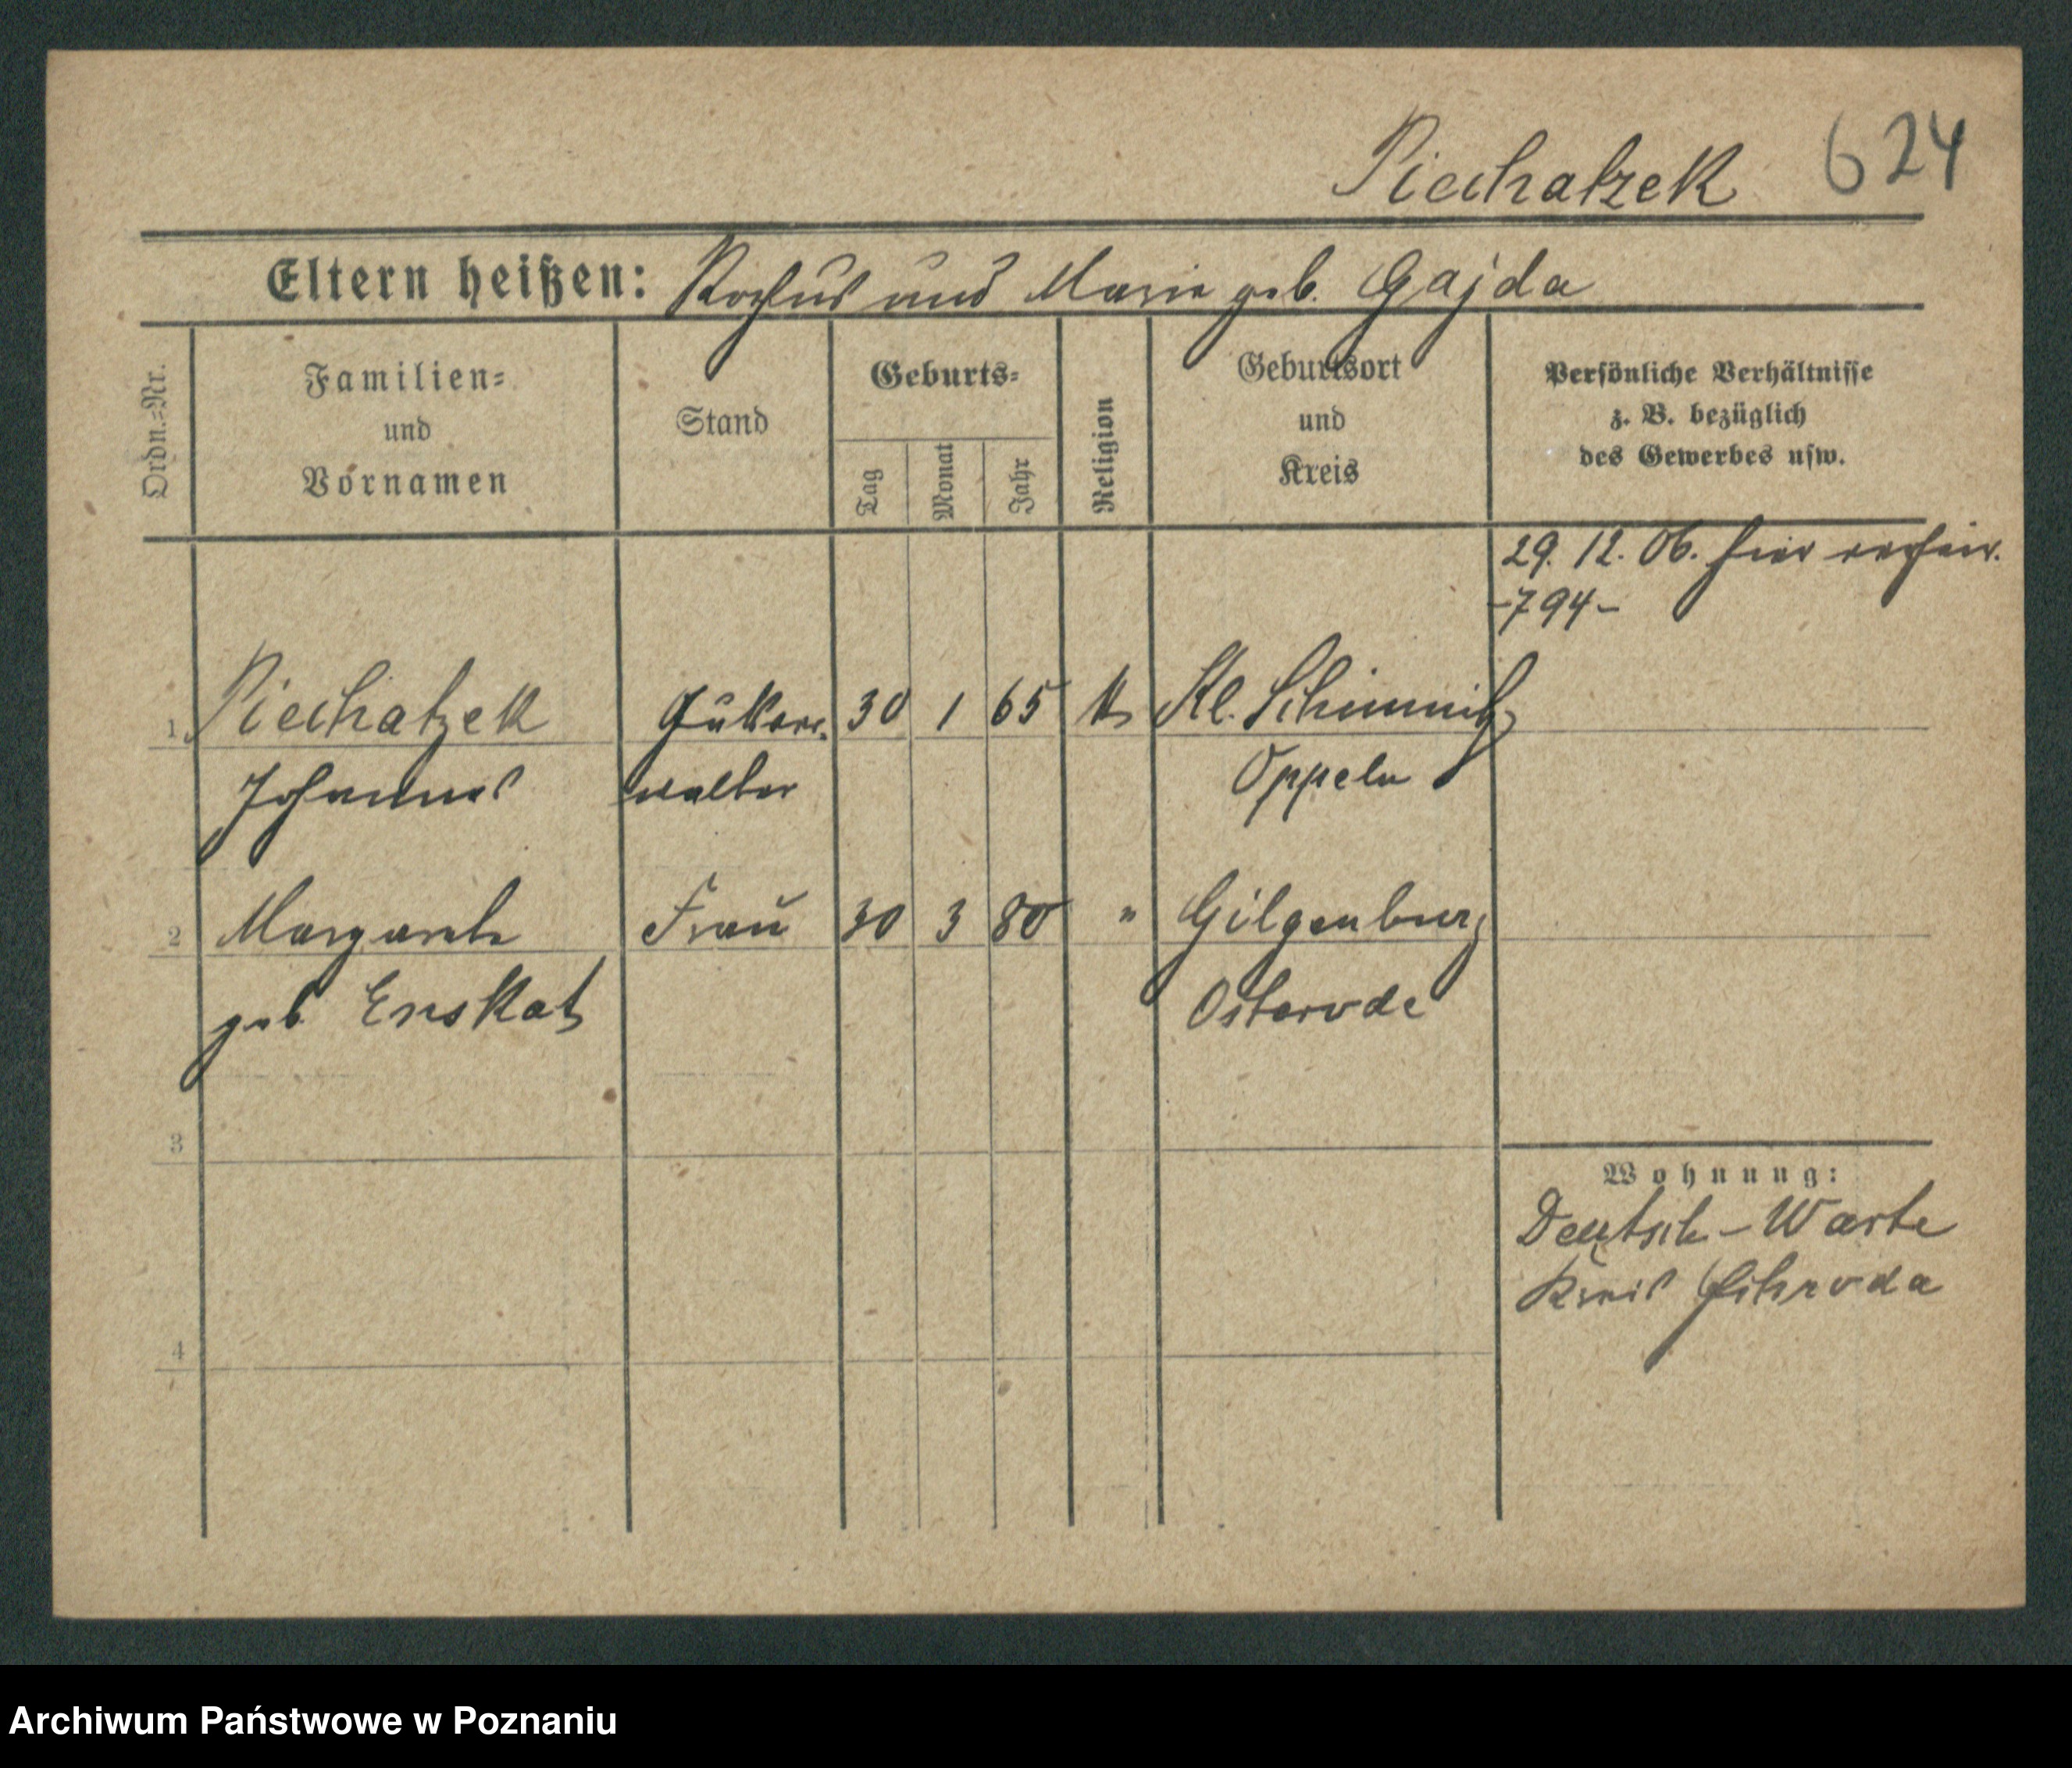 Piechatzek 624
Eltern heißen: Rochus und Marie geb. Gajda
Ordn.=Nr.
Familien=
und
Vornamen
Stand
Geburts=
Tag
Monat
Jahr
Religion
Geburtsort
und
Kreis
Persönliche Verhältnisse
z. B. bezüglich
des Gewerbes usw.
29. 12. 06. hier verheir.
-794-
1 Piechatzek Gutsver- 30 1 65 k Kl. Schimnitz
Johannes walter Oppeln
2 Margarete Frau 30 3 80 " Gilgenburg
geb. Enskat Osterode
3
Wohnung:
Deutsch-Warte
Kreis Schroda
4
Archiwum Państwowe w Poznaniu